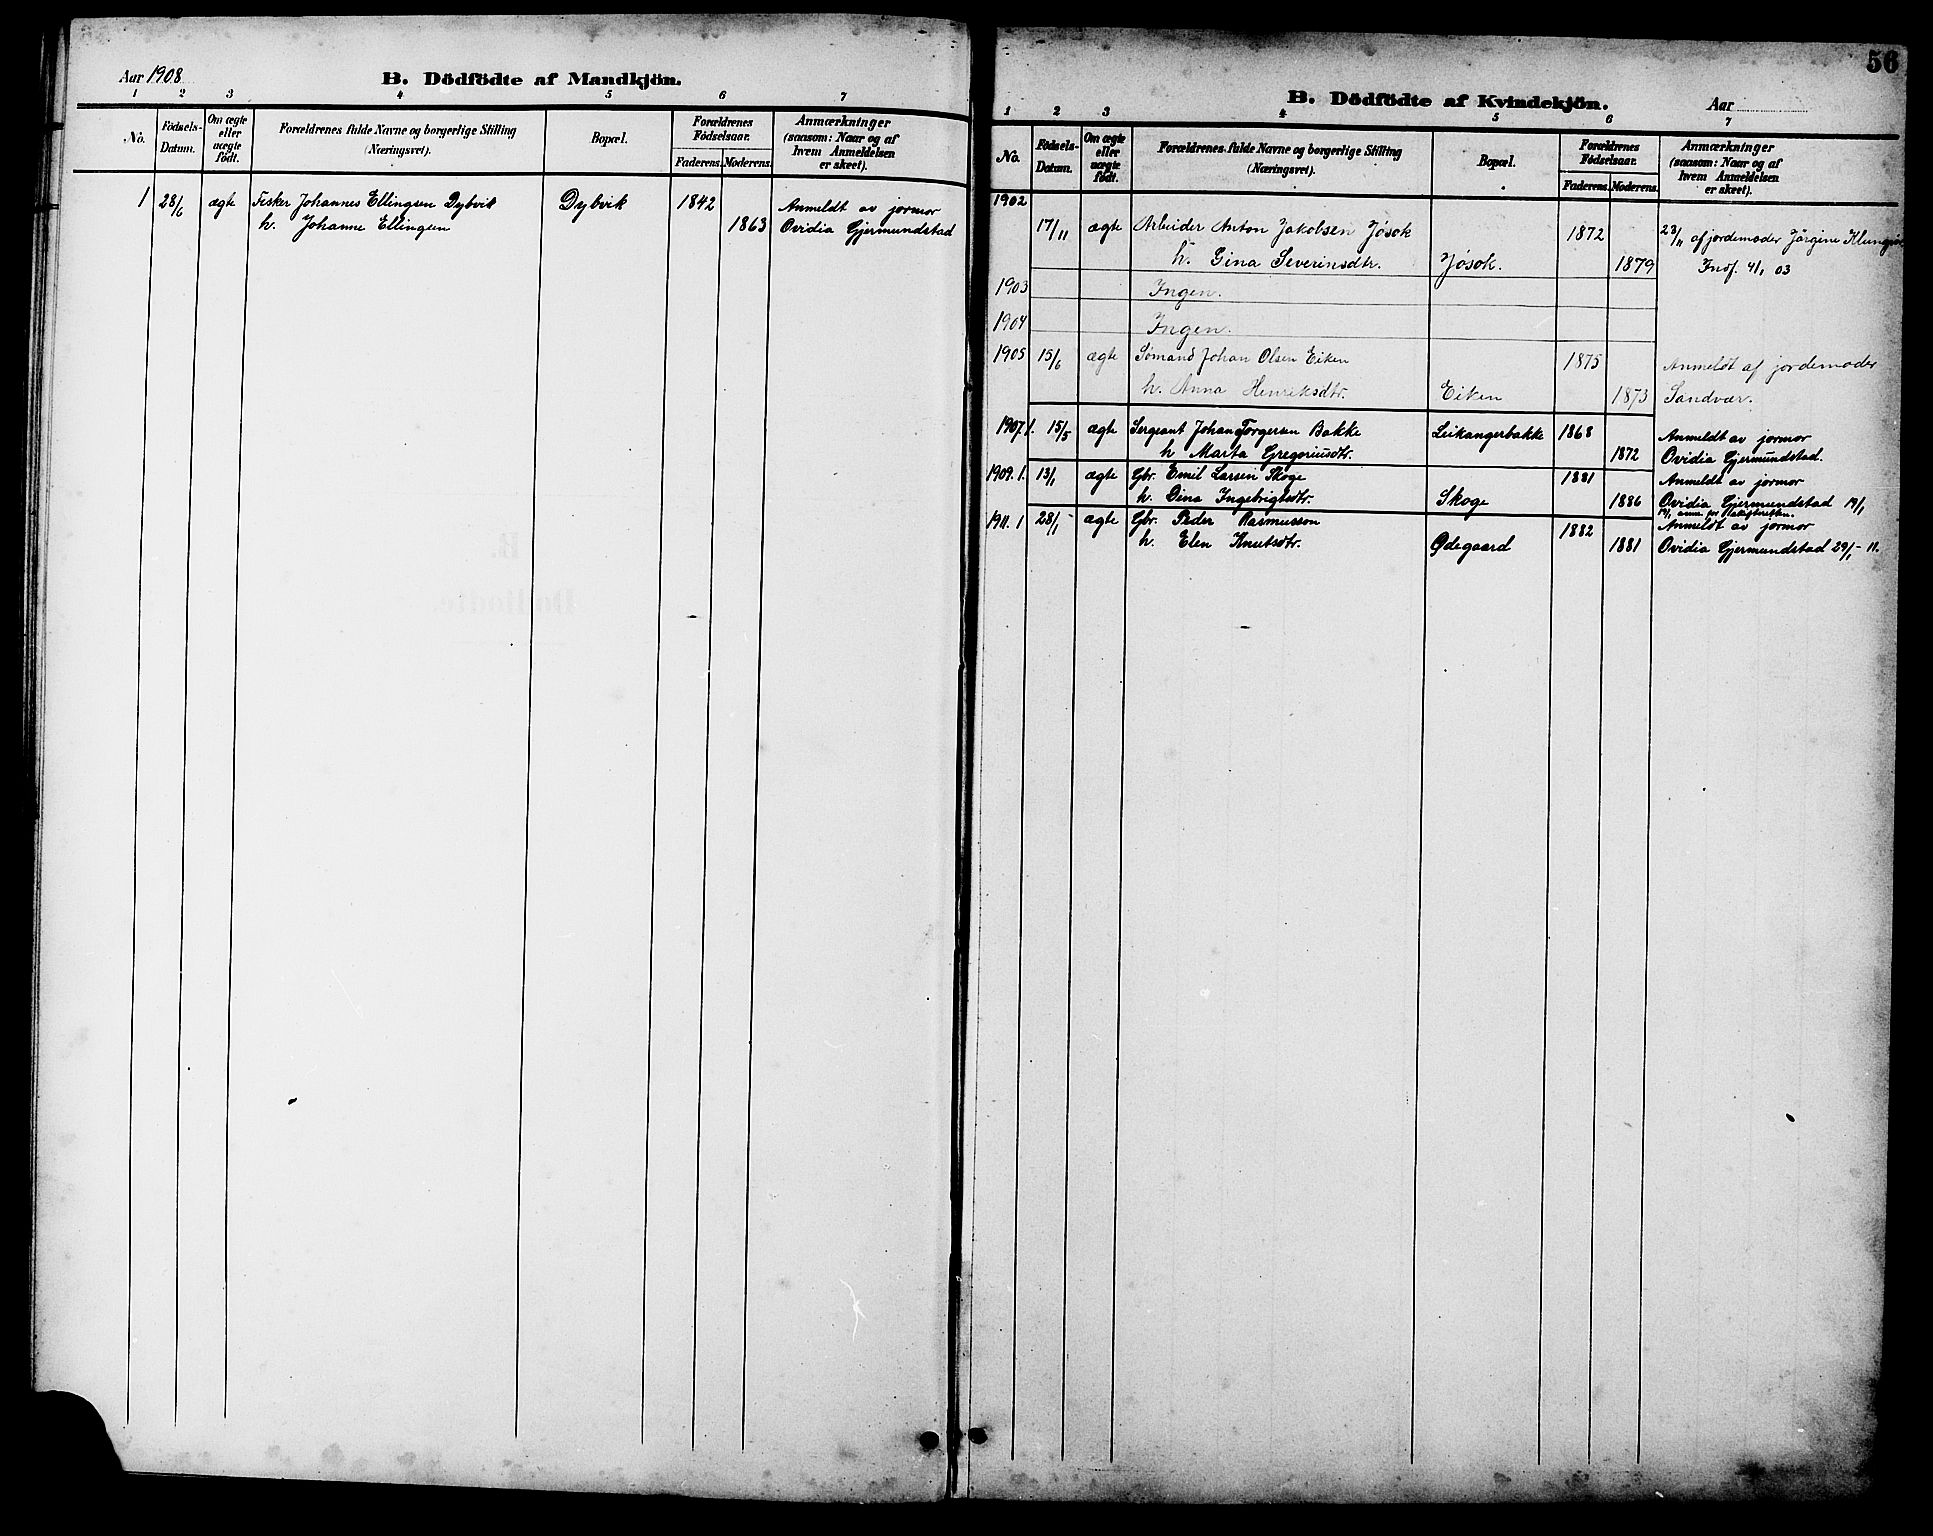 Aar 1908
B. Dödfödte af Mandkjön.
1 2 3 4 5 6 7
No.
Födsels-
Datum.
Om ægte
eller
uægte
födt.
Forældrenes fulde Navne og borgerlige Stilling
(Næringsvei).
Bopæl.
Forældrenes
Födselsaar.
Faderens. Moderens.
Anmærkninger
(saasom: Naar og af
hvem Anmeldelsen
er skeet).
1 28/6 ægte Fisker Johannes Ellingsen Dybvik Dybvik 1842 Anmeldt av jormor
h. Johanne Ellingsen 1863 Ovidia Gjermundstad
56
B. Dödfödte af Kvindekjön.
Aar
1 2 3 4 5 6 7
No.
Födsels-
Datum.
Om ægte
eller
uægte
födt.
Forældrenes fulde Navne og borgerlige Stilling
(Næringsvei).
Bopæl.
Forældrenes
Födselsaar.
Faderens. Moderens.
Anmærkninger
(saasom: Naar og af
hvem Anmeldelsen
er skeet).
1902
17/11 ægte Arbeider Anton Jakobsen Jøsok 1872 23/11 af jordemoder Jørgine
h. Gina Severinsdtr. Jøsok. 1879 Indf. 4/1 03
1903 Ingen.
1904 Ingen.
1905 15/6 ægte Sømand Johan Olsen Eiken 1875 Anmeldt af jordemoder
h. Anna Henriksdtr. Eiken 1873 Sandvær.
1907 1. 15/5 ægte Sergeant Johan Torgersen Bakke Leikangerbakke 1868 Anmeldt av jormor
h Marta Gregoriusdtr. 1872 Ovidia Gjermundstad.
1909. 1. 13/1 ægte Gbr. Emil Larsen Skoge 1881 Anmeldt av jormor
h. Gina Ingebrigtsdtr. Skoge 1886 Ovidia Gjermundstad 14/1
1911. 1 28/1 ægte Gbr. Peder Rasmusson 1882 Anmeldt av jormor
h. Elen Knutsdtr. Ødegaard 1881 Ovidia Gjermundstad 29/1-11.